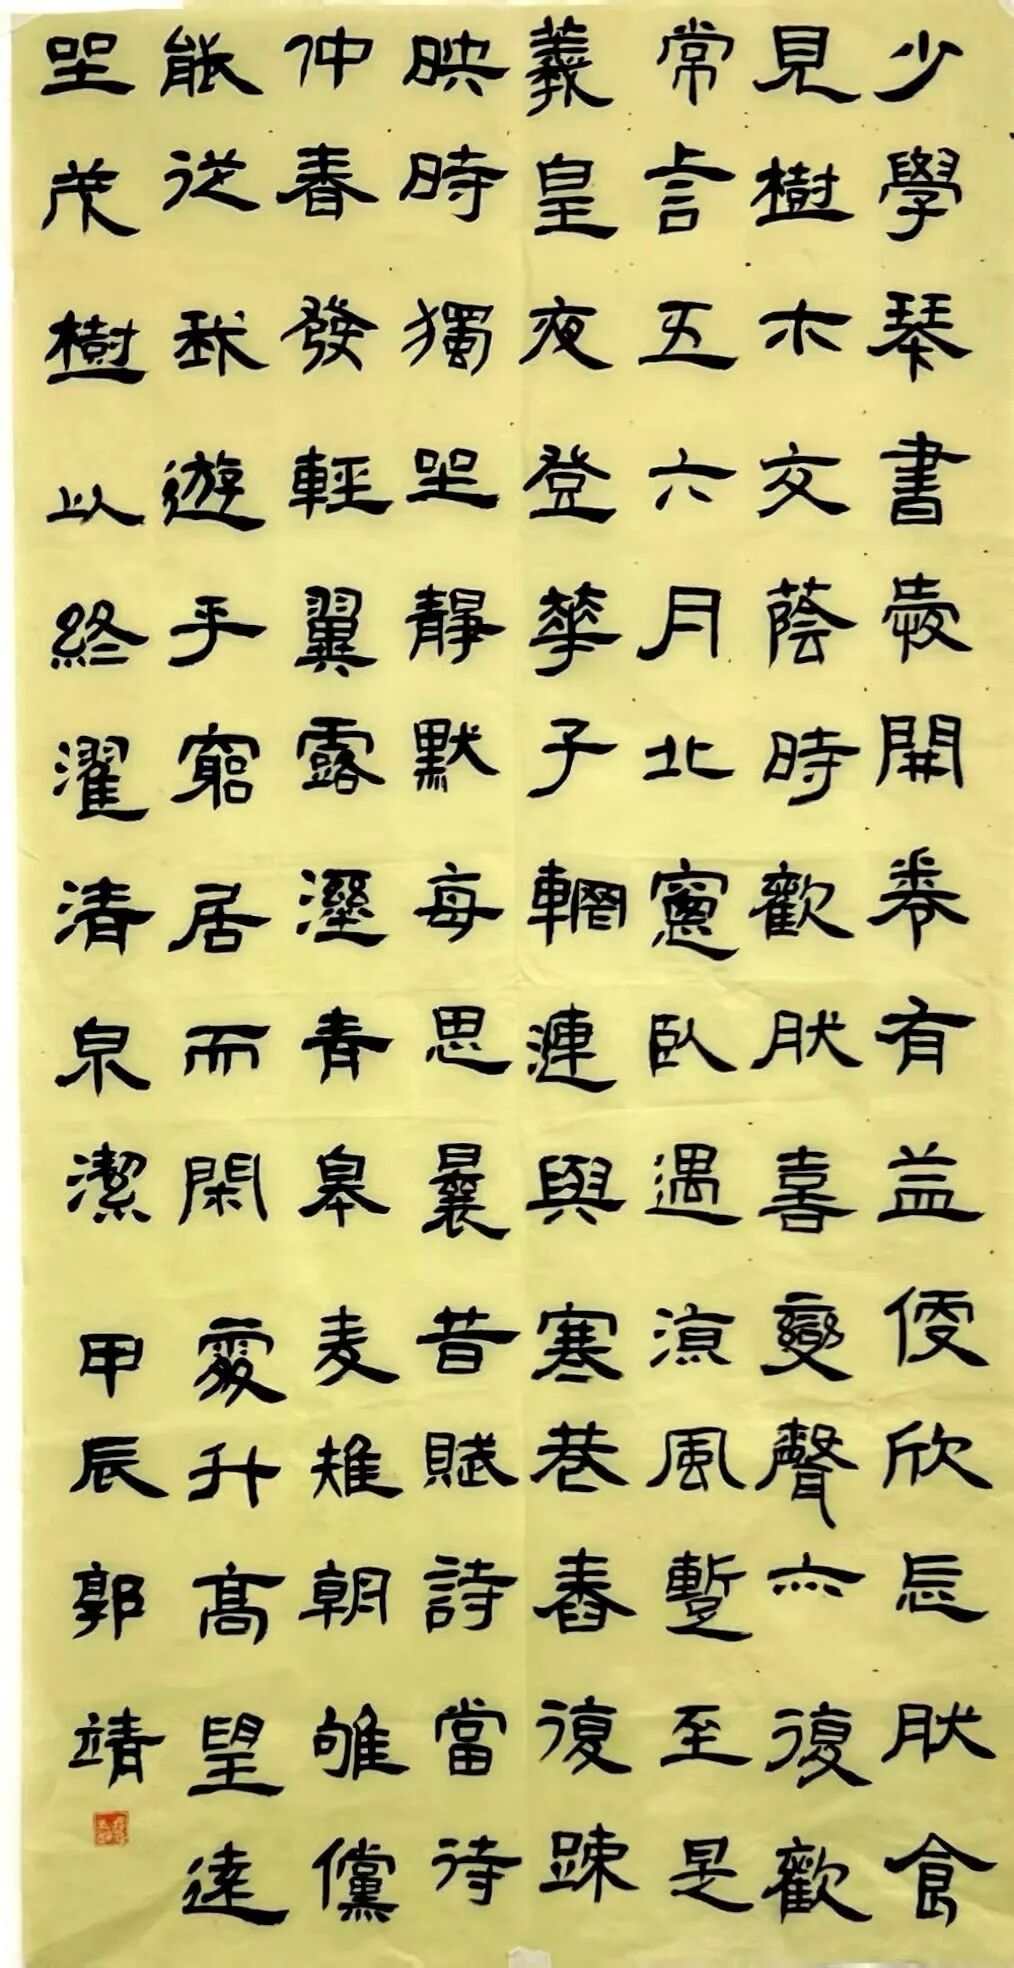 少學琴書愛開卷有益便欣忘然食
見樹木交蔭時歡然喜變聲亦復歡
常言五六月北窻臥遇涼風暫至是
羲皇夜登華子輞漣與寒巷舂復疎
映時獨坐靜默每思曩昔賦詩當待
仲春發輕翼露溼青皋麦雉朝雊儻
能從我遊乎窮居而閑處升高望遠
坐茂樹以終濯清泉潔甲辰郭靖